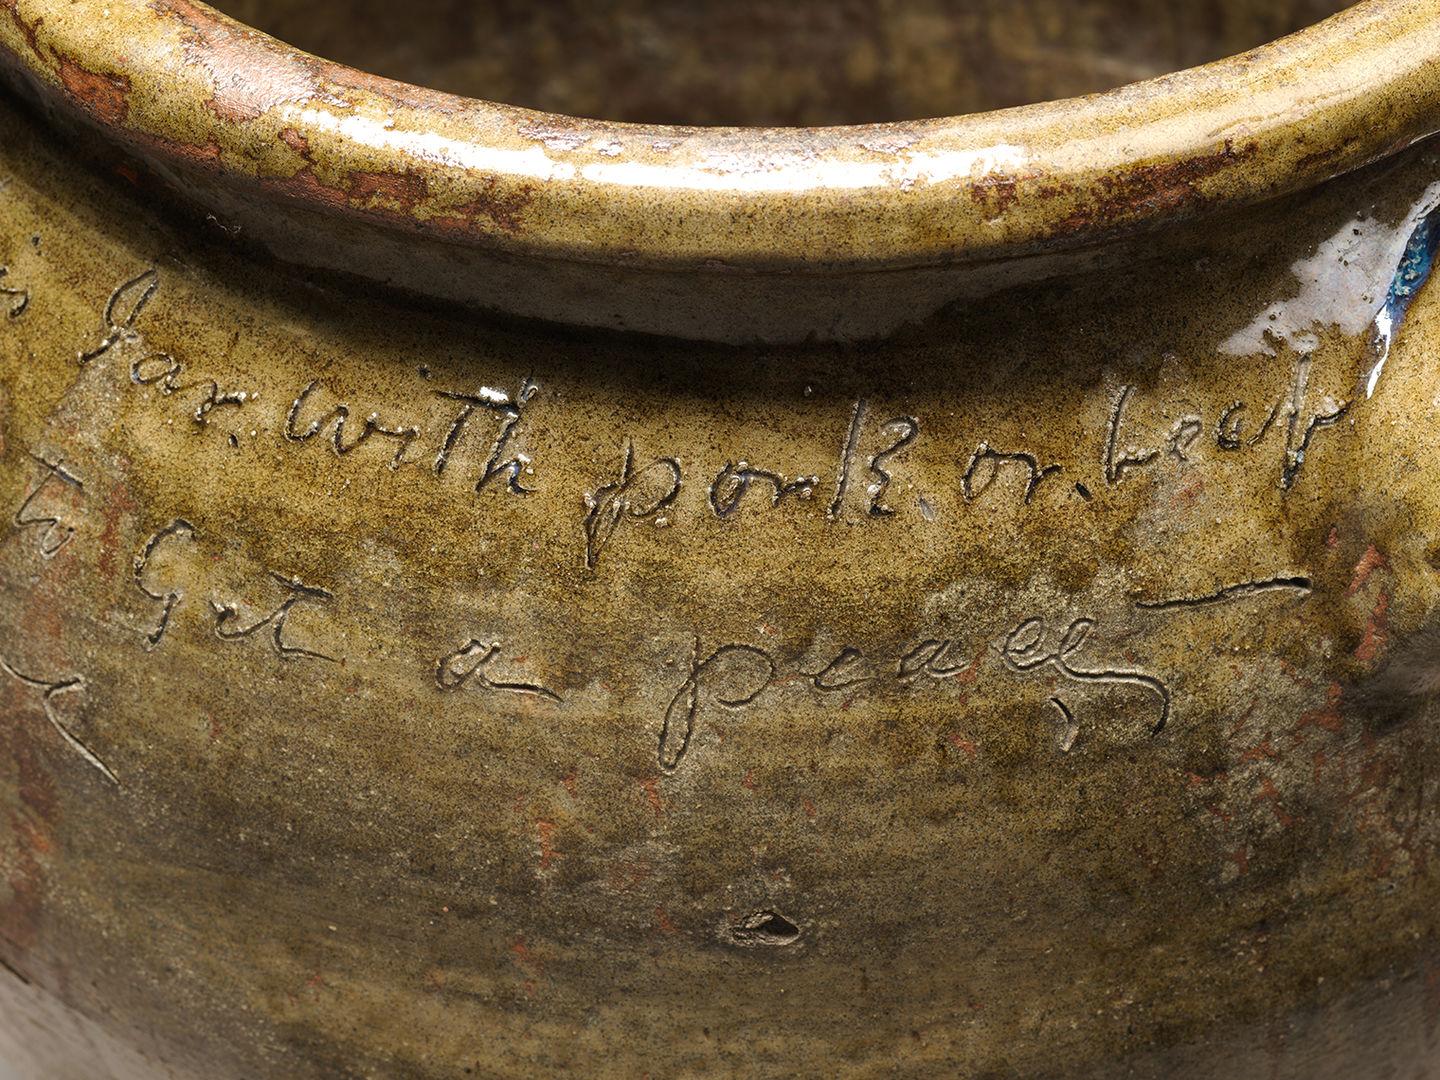 s Jar. with pork. or. beef
to Get a peace,